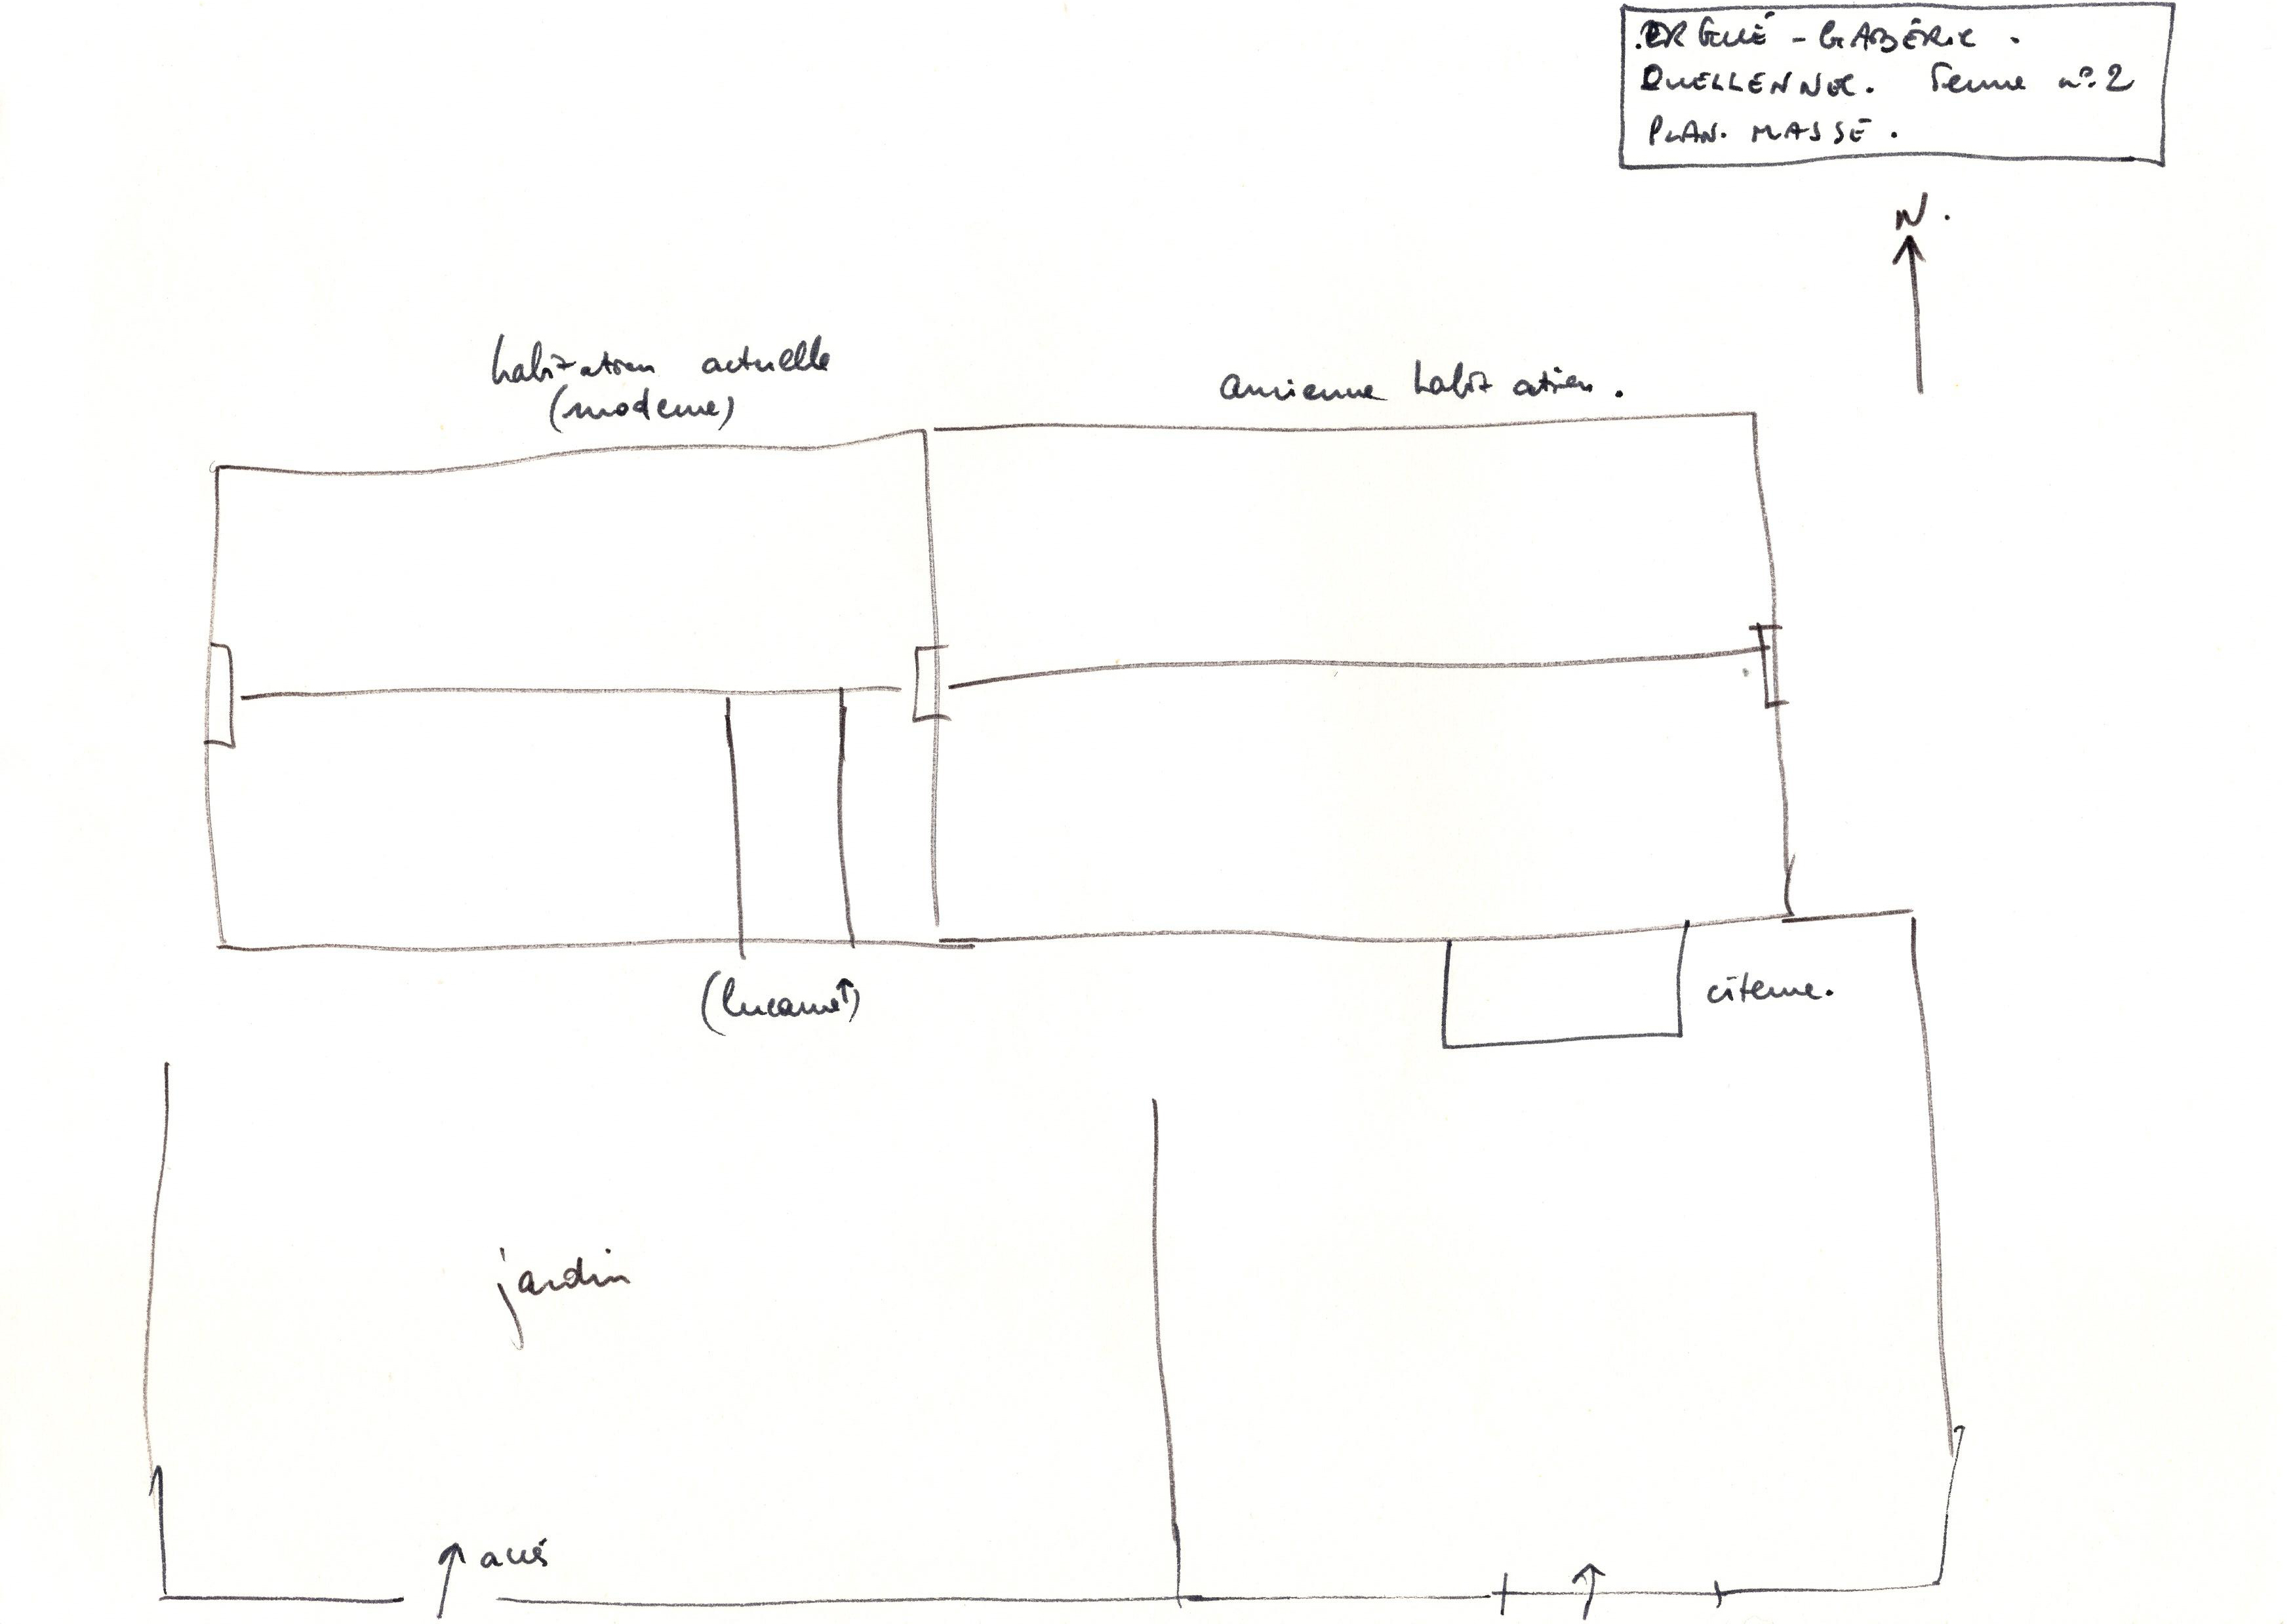 ERGUÉ - GABÉRIC.
QUELLENNEC. Ferme n°. 2
PLAN. MASSE.
N.
habitation actuelle
(moderne)
ancienne habitation.
(lucarne↑)
citerne.
jardin
accés